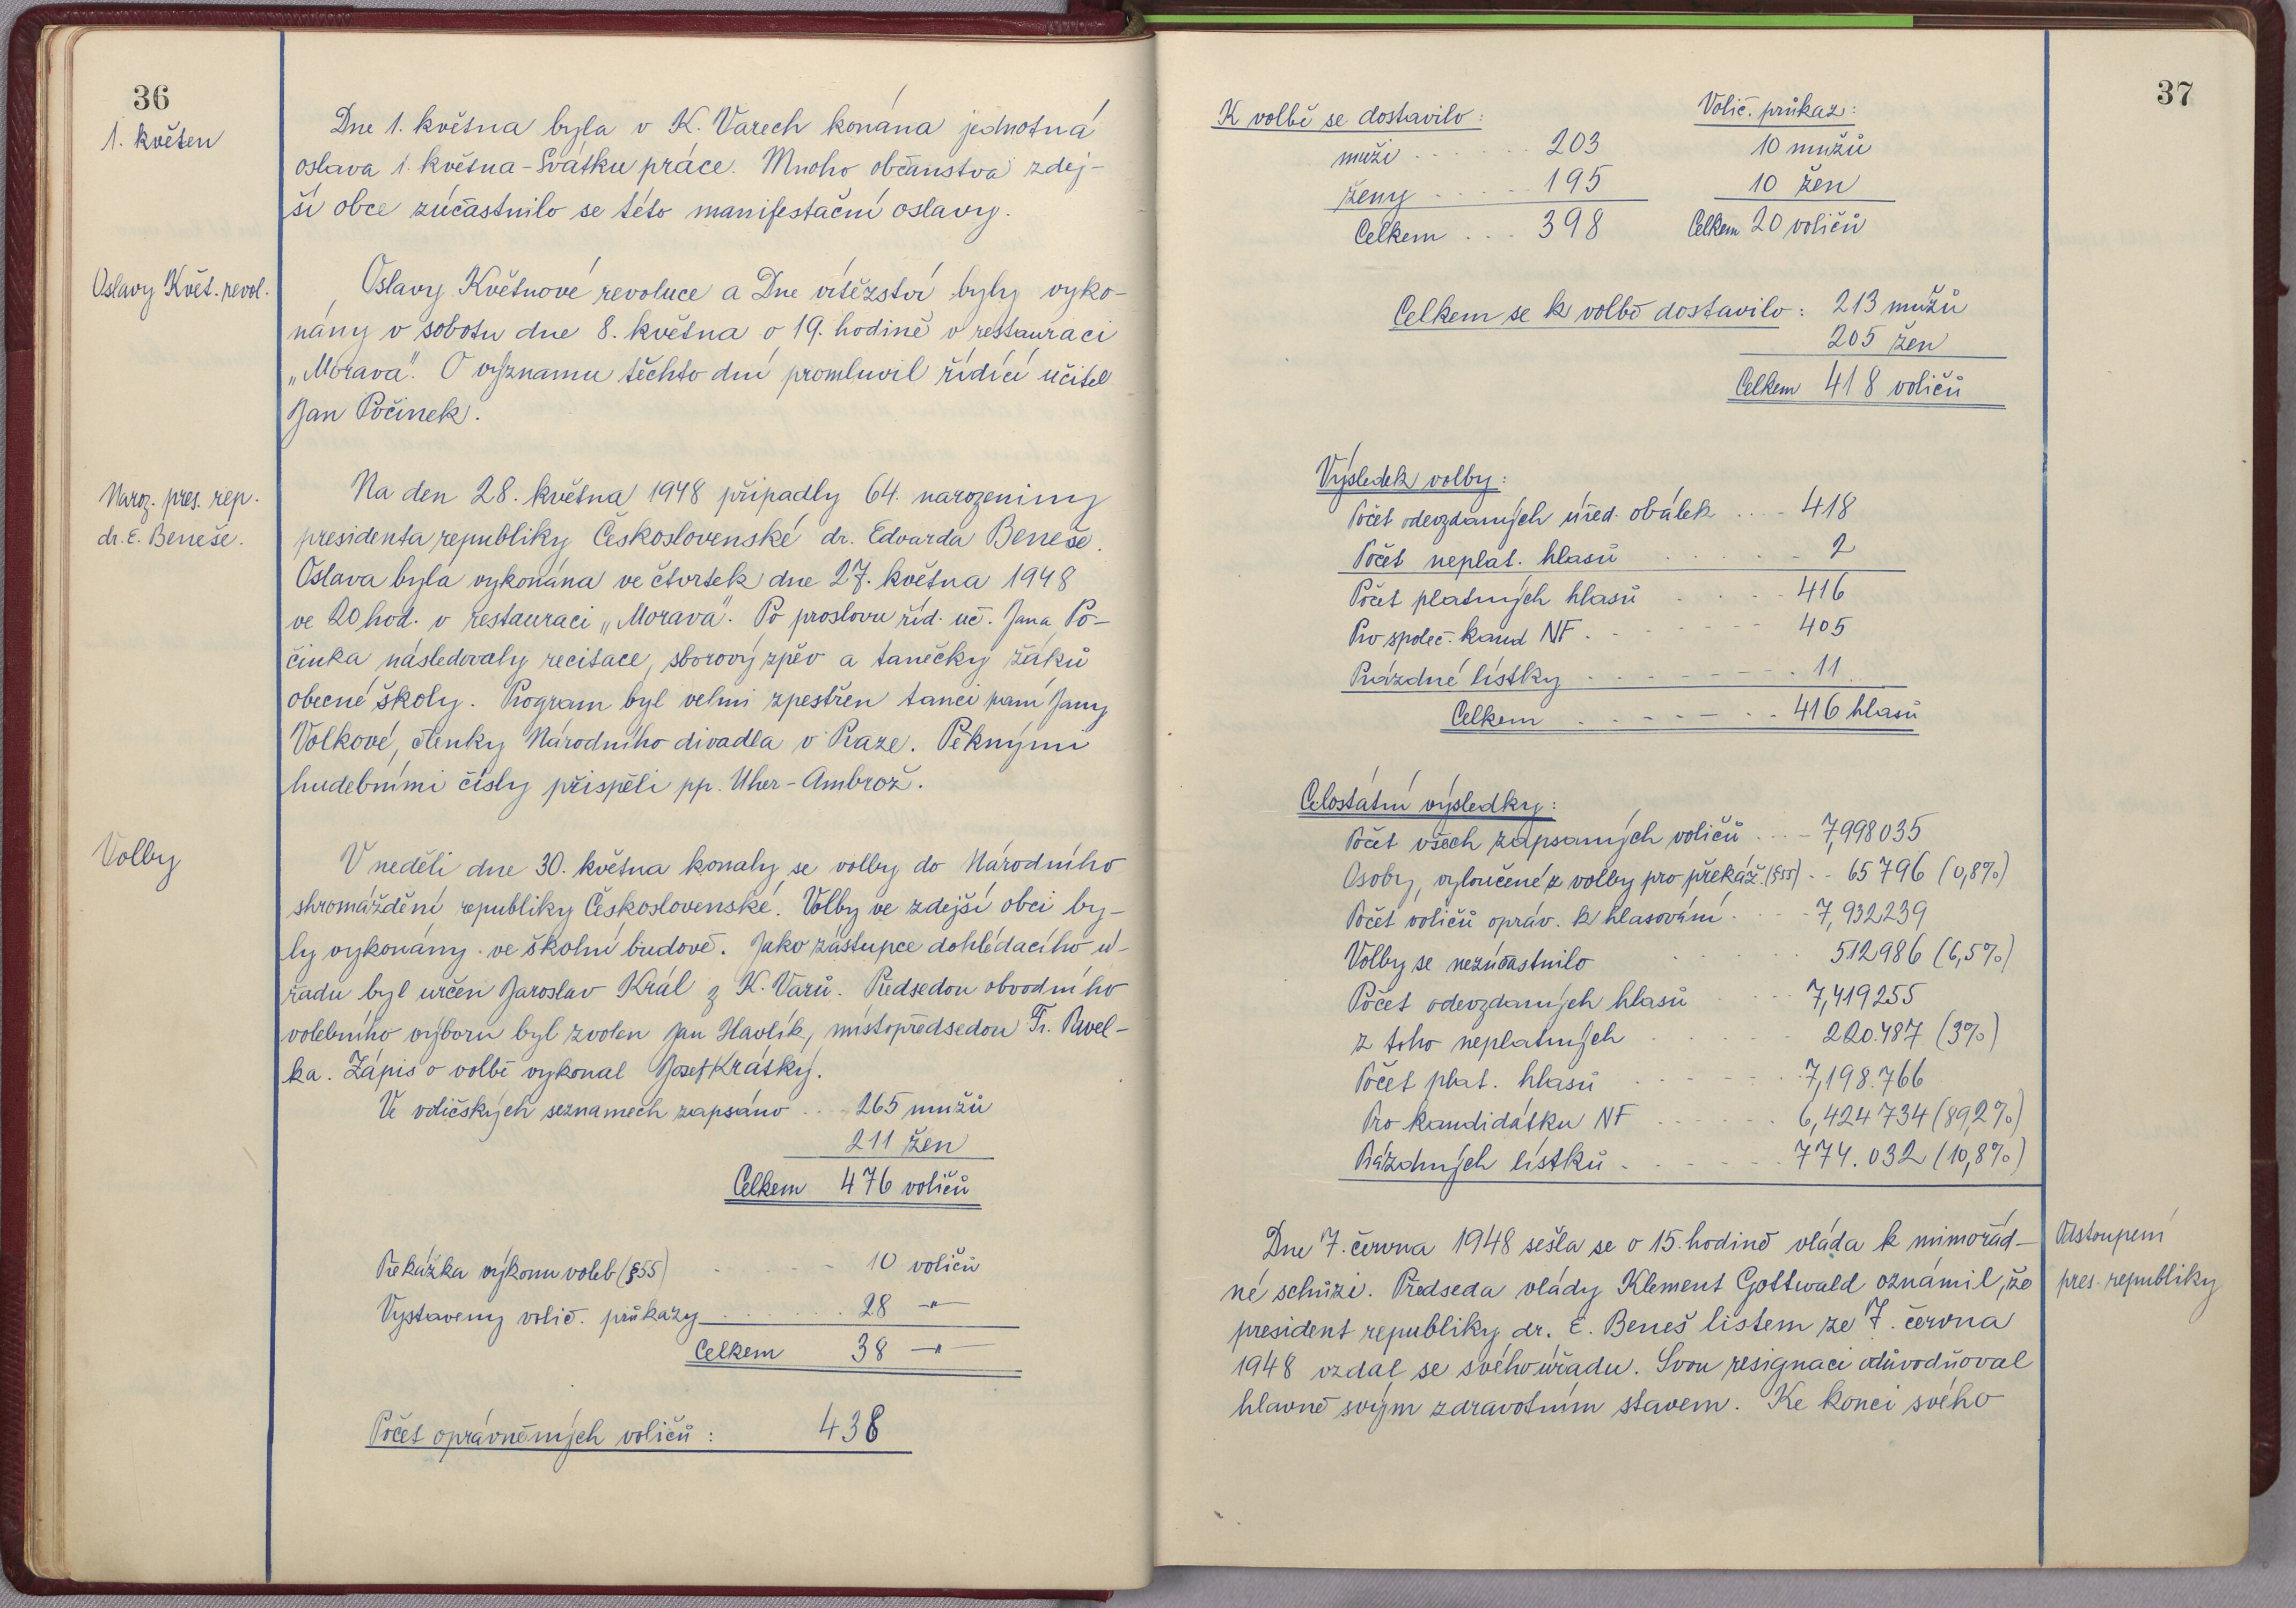 36
1. květen
Dne 1. května byla v K. Varech konána jednotná
oslava 1. května - Svátku práce. Mnoho občanstva zdej-
ší obce zúčastnilo se této manifestační oslavy.
Oslavy Květ. revol.
Oslavy Květnové revoluce a Dne vítězství byly vyko-
nány v sobotu dne 8. května o 19. hodině v restauraci
„Morava“. O významu těchto dní promluvil řídící učitel
Jan Počinek.
Naroz. pres. rep.
dr. E. Beneše.
Na den 28. května 1948 připadly 64. narozeniny
presidenta republiky Československé dr. Edvarda Beneše.
Oslava byla vykonána ve čtvrtek dne 27. května 1948
ve 20 hod. v restauraci „Morava“. Po proslovu říd. uč. Jana Po-
činka následovaly recitace, sborový zpěv a tanečky žáků
obecné školy. Program byl velmi zpestřen tanci paní Jany
Volkové, členky Národního divadla v Praze. Pěknými
hudebními čísly přispěli pp. Uher - Ambrož.
Volby
V neděli dne 30. května konaly se volby do Národního
shromáždění republiky Československé. Volby ve zdejší obci by-
ly vykonány ve školní budově. Jako zástupce dohlédacího ú-
řadu byl určen Jaroslav Král z K. Varů. Předsedou obvodního
volebního výboru byl zvolen Jan Havlík, místopředsedou Fr. Pavel-
ka. Zápis o volbě vykonal Josef Krátký.
Ve voličských seznamech zapsáno .. 265 mužů
211 žen
Celkem 476 voličů
Překážka výkonu voleb (§55) . . . . 10 voličů
Vystaveny volič. průkazy . . . . 28 —„—
Celkem 38 —„—
Počet oprávněných voličů : 438
37
K volbě se dostavilo : Volič. průkaz :
muži . . . . . 203 10 mužů
ženy . . . . . 195 10 žen
Celkem . . . 398 Celkem 20 voličů
Celkem se k volbě dostavilo : 213 mužů
205 žen
Celkem 418 voličů
Výsledek volby :
Počet odevzdaných úřed. obálek . . . . 418
Počet neplat. hlasů . . . . . 2
Počet platných hlasů . . . . 416
Pro společ. kand NF . . . . . 405
Prázdné lístky . . . . . . 11
Celkem . . . . . . 416 hlasů
Celostátní výsledky :
Počet všech zapsaných voličů . . . 7,998035
Osoby, vyloučené z volby pro překáž. (§55) . . 65796 (0,8%)
Počet voličů opráv. k hlasování . . . 7,932239
Volby se nezúčastnilo . . . . . 512986 (6,5%)
Počet odevzdaných hlasů . . . . 7,419255
z toho neplatných . . . . . 220.487 (3%)
Počet plat. hlasů . . . . . 7,198.766
Pro kandidátku NF . . . . . 6,424734 (89,2%)
Prázdných lístků . . . . . 774.032 (10,8%)
Odstoupení
pres. republiky
Dne 7. června 1948 sešla se o 15. hodině vláda k mimořád-
né schůzi. Předseda vlády Klement Gottwald oznámil, že
president republiky dr. E. Beneš listem ze 7. června
1948 vzdal se svého úřadu. Svou resignaci odůvodňoval
hlavně svým zdravotním stavem. Ke konci svého